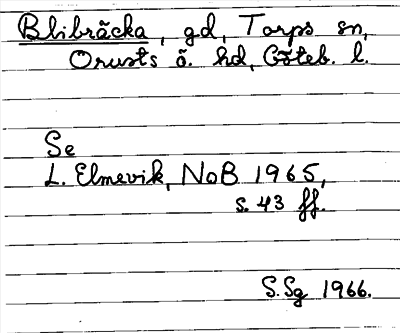 Blibräcka, gd, Torps sn,
Orusts ö. hd, Göteb. l.
Se
L. Elmevik, NoB 1965,
s. 43 ff.
S.Sg 1966.